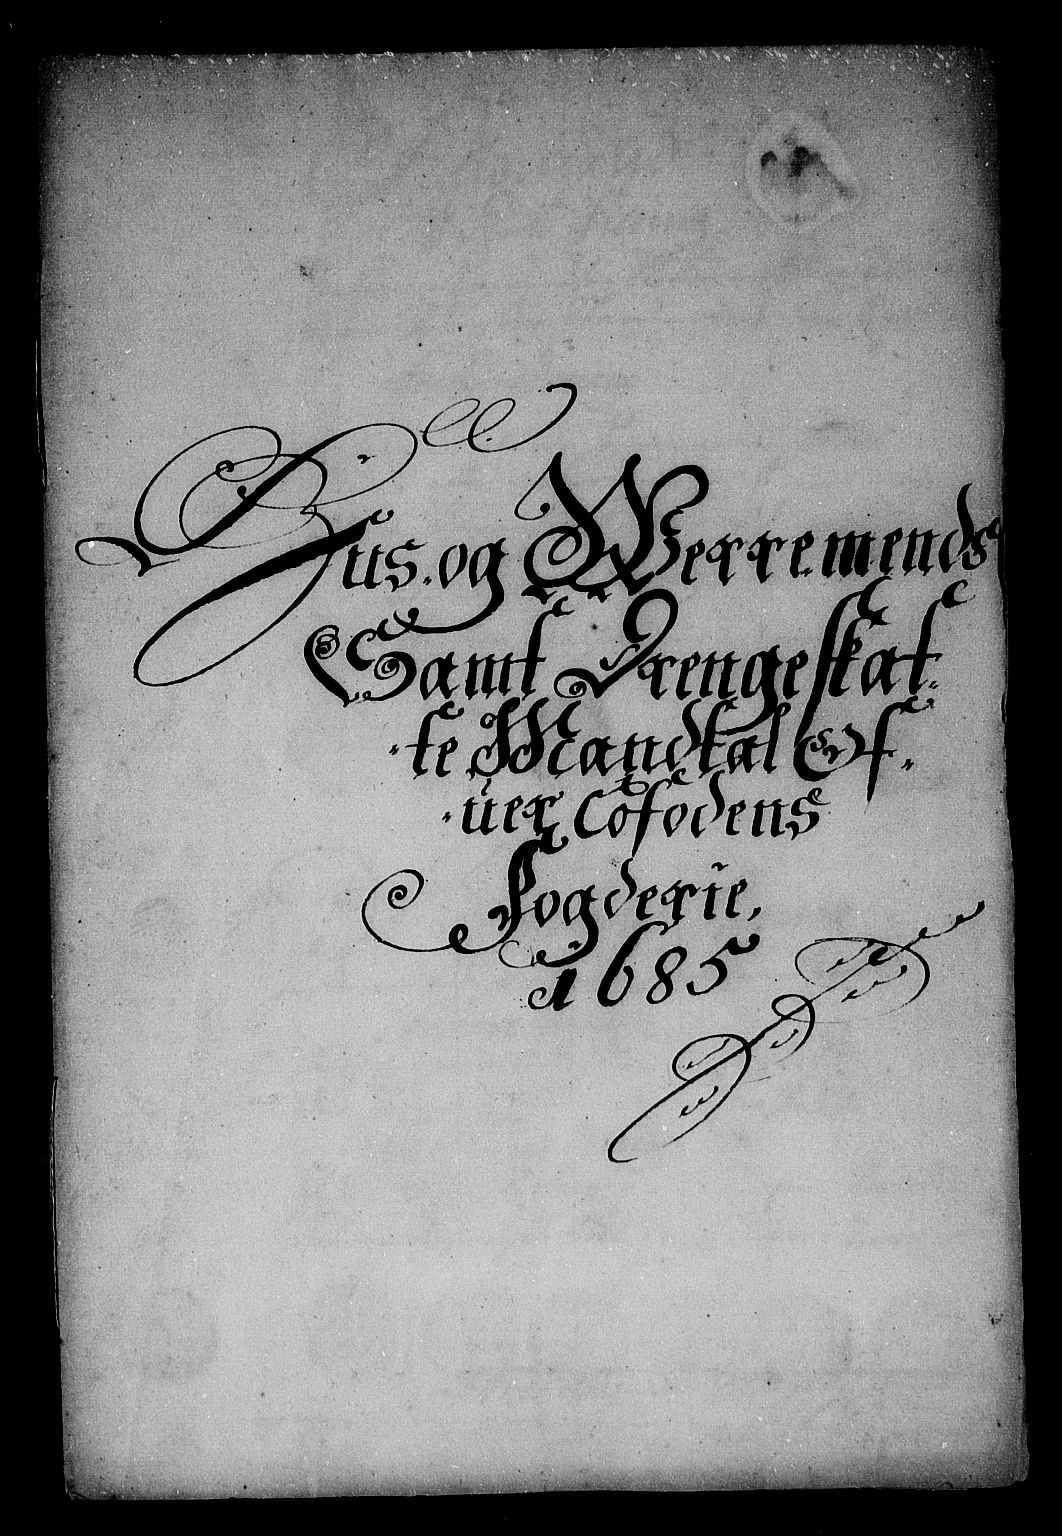 Hus. og Werremends
Samt Drengeskat-
-te Mandtal Of-
-uer Cofodens
Fogderie,
1685